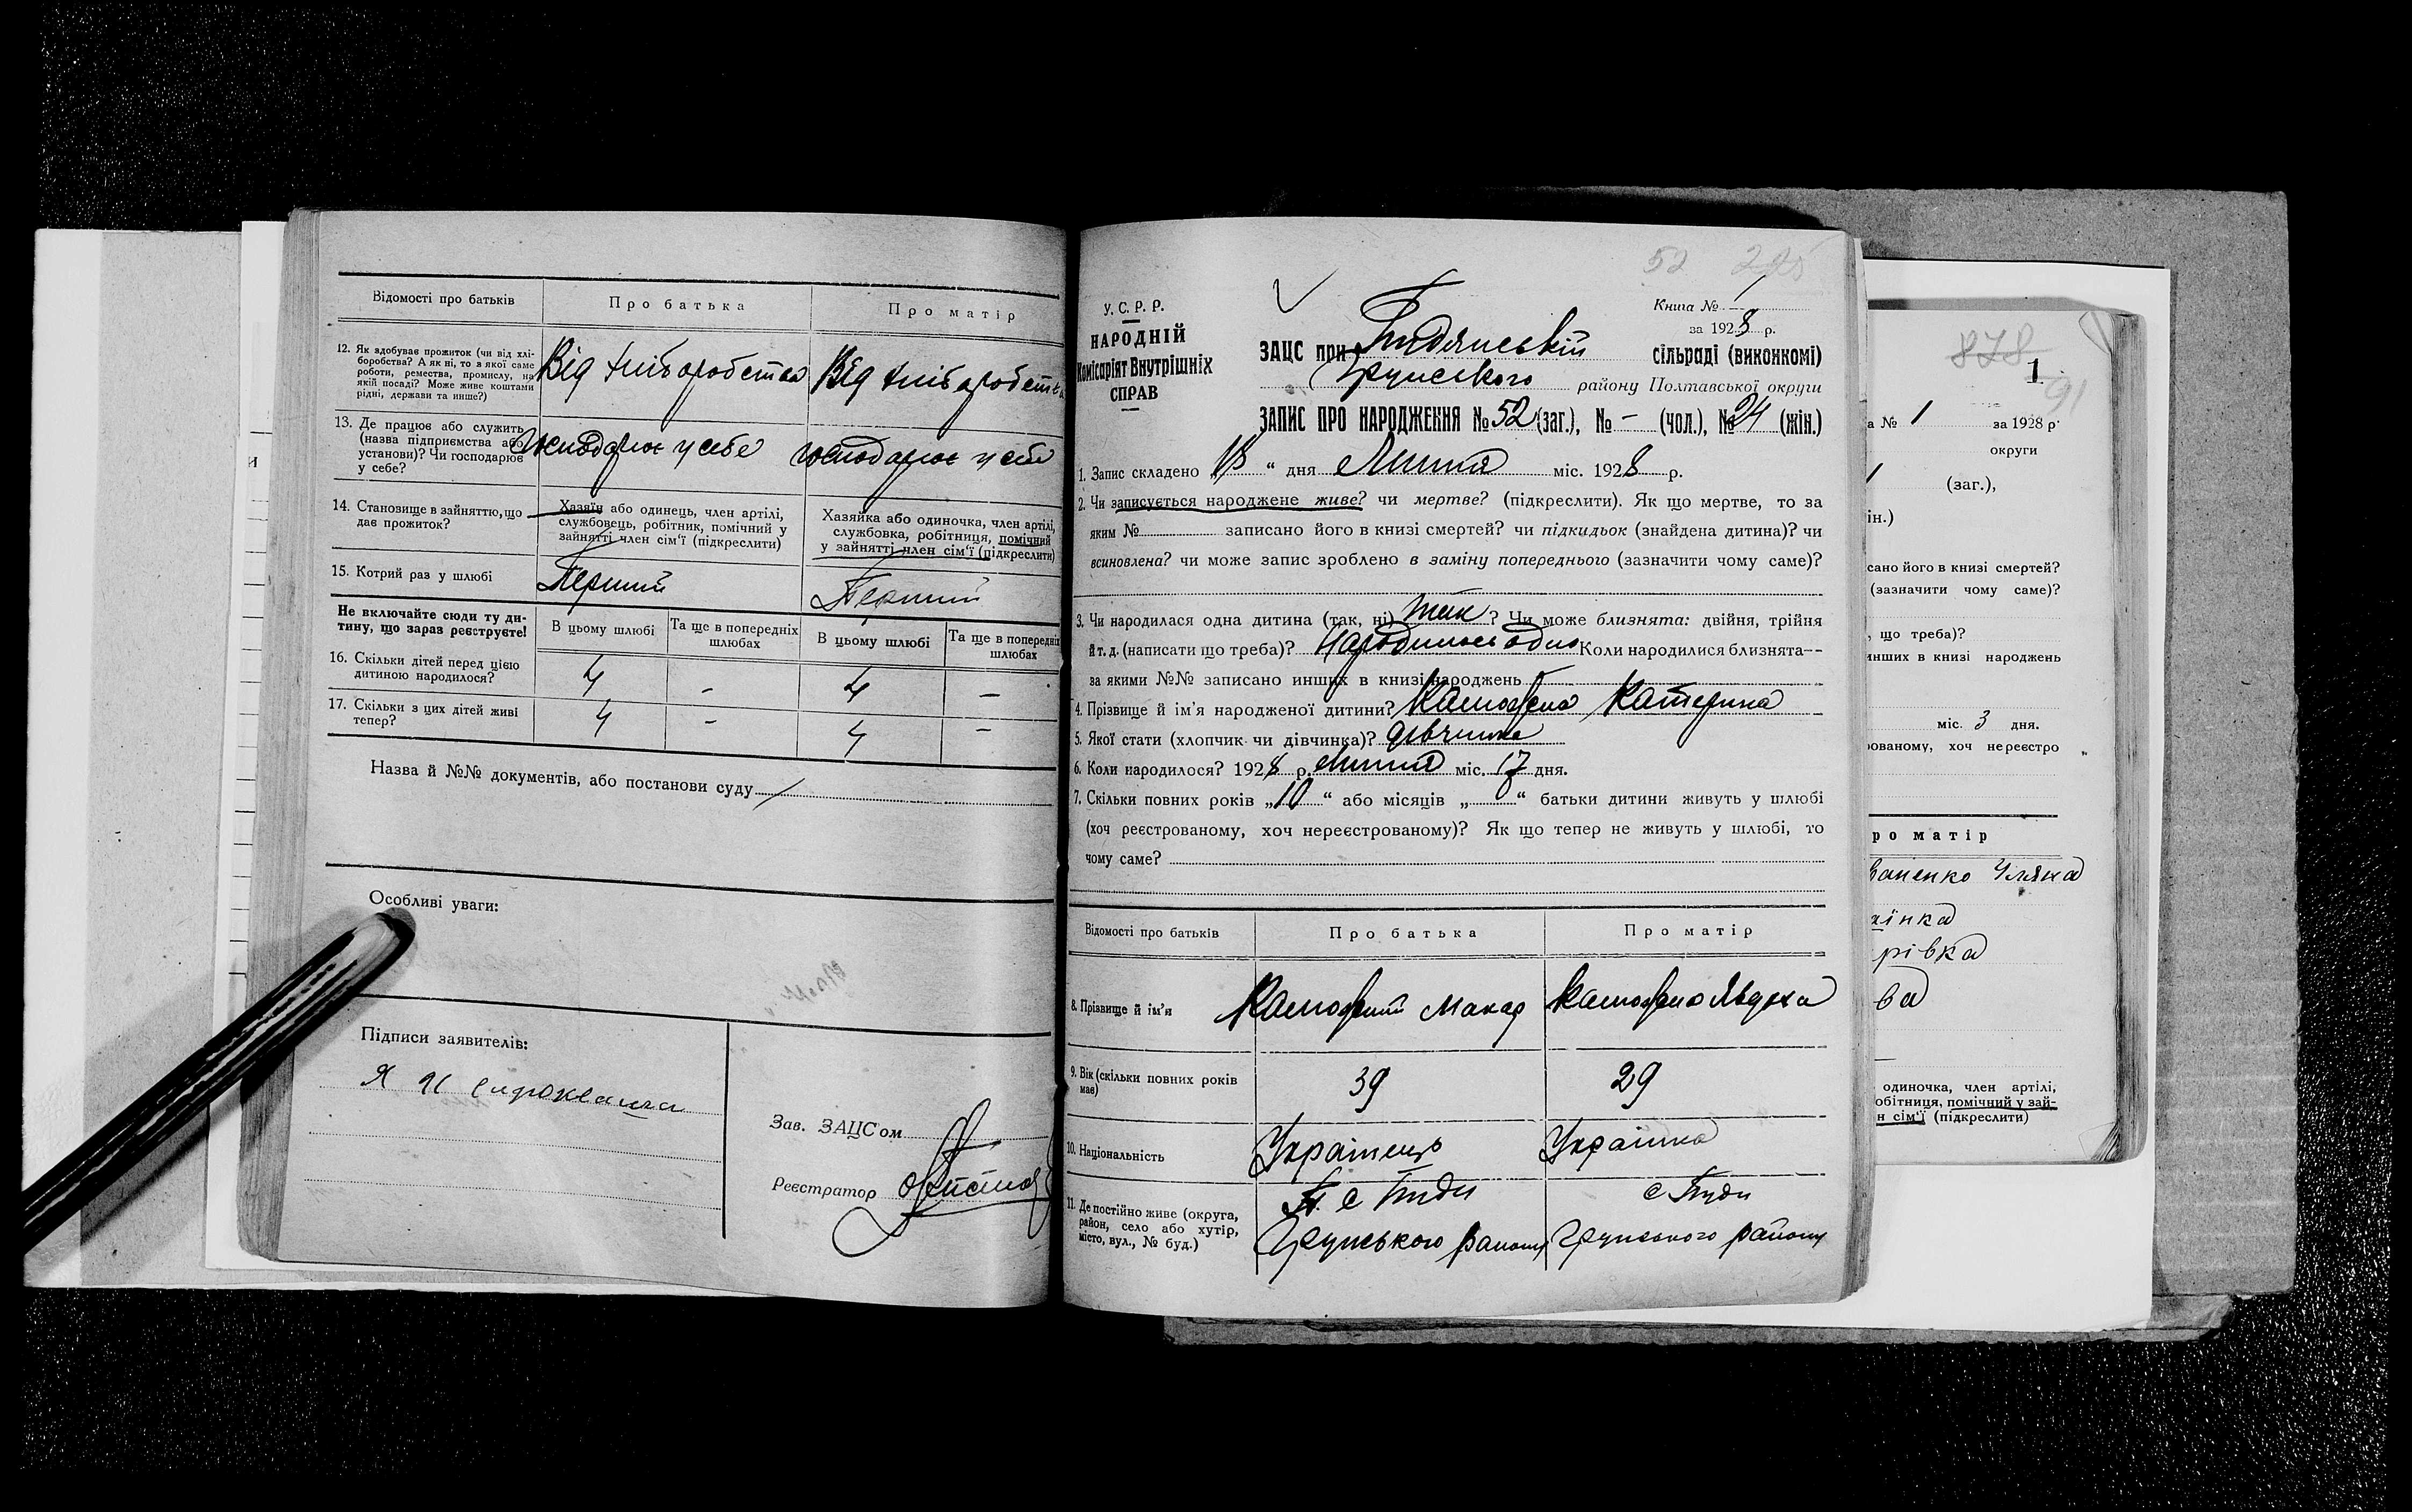 Відомості про батьків
Про батька
Про матір
12. Як здобуває прожиток (чи від хлі-
боробства? А як ні, то з якої саме
роботи, ремества, промислу, на
якій посаді? Може живе коштами
рідні, держави та инше?)
Від хліборобства
Від хліборобства
13. Де працює або служить
(назва підприємства або
установи)? Чи господарює
у себе?
господарює у себе
господарює у себе
14. Становище в зайняттю, що
дає прожиток?
Хазяїн або одинець, член артілі,
службовець, робітник, помічний у
зайнятті член сім'ї (підкреслити)
Хазяйка або одиночка, член артілі,
службовка, робітниця, помічний
у зайнятті член сім'ї (підкреслити)
15. Котрий раз у шлюбі
Перший
Перший
Не включайте сюди ту ди-
тину, що зараз реєструєте!
В цьому шлюбі
Та ще в попередніх
шлюбах
В цьому шлюбі
Та ще в попередніх
шлюбах
16. Скільки дітей перед цією
дитиною народилося?
4 - 4 -
17. Скільки з цих дітей живі
тепер?
4 - 4 -
Назва й №№ документів, або постанови суду
Особливі уваги:
Підписи заявителів:
Зав. ЗАЦС'ом
Реєстратор
52
У. С. Р. Р.
НАРОДНІЙ
Комісаріят Внутрішніх
СПРАВ
Книга № 1
за 1928 р.
ЗАЦС при сільраді (виконкомі)
Грунського району Полтавської округи
ЗАПИС ПРО НАРОДЖЕННЯ № 52 (заг.), № - (чол.), № 24 (жін.)
1. Запис складено 18 " дня Липня міс. 1928 р.
2. Чи записується народжене живе? чи мертве? (підкреслити). Як що мертве, то за
яким № записано його в книзі смертей? чи підкидьок (знайдена дитина)? чи
всиновлена? чи може запис зроблено в заміну попереднього (зазначити чому саме)?
3. Чи народилася одна дитина (так, ні) так ? Чи може близнята: двійня, трійня
й т. д. (написати що треба)? народилось одно Коли народилися близнята—
за якими №№ записано инших в книзі народжень
4. Прізвище й ім'я народженої дитини? Катерина
5. Якої стати (хлопчик чи дівчинка)? дівчинка
6. Коли народилося? 1928 р. Липня міс. 17 дня.
7. Скільки повних років „10" або місяців „ " батьки дитини живуть у шлюбі
(хоч реєстрованому, хоч нереєстрованому)? Як що тепер не живуть у шлюбі, то
чому саме?
Відомості про батьків
Про батька
Про матір
8. Прізвище й ім'я
Макар
Явдоха
9. Вік (скільки повних років
має)
39
29
10. Національність
Українець
Українка
11. Де постійно живе (округа,
район, село або хутір,
місто, вул., № буд.)
Грунського району
Грунського району
878
1
91
а № 1 за 1928 р.
округи
1 (заг.),
ін.)
сано його в книзі смертей?
(зазначити чому саме)?
, що треба)?
инших в книзі народжень
міс. 3 дня.
ованому, хоч нереєстро
ро матір
ваненко Уляна
їнка
рівка
ва
одиночка, член артілі,
обітниця, помічний у зай-
н сім'ї (підкреслити)